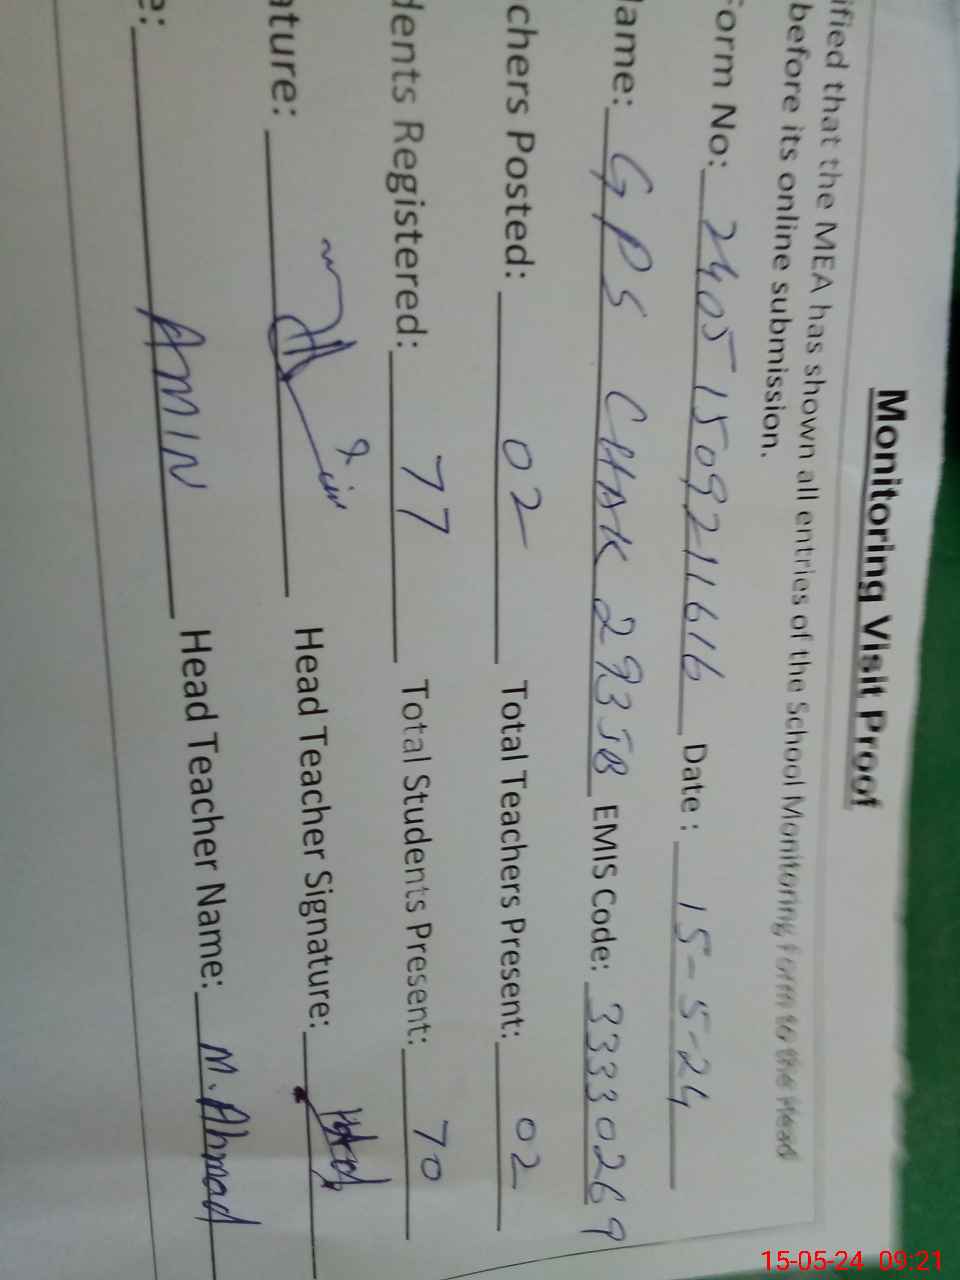 Monitoring Visit Proof
ified that the MEA has shown all entries of the School Monitoring Form to the Head
before its online submission.
Form No: 24051509211616 Date: 15-5-24
Name: GPS CHAK 293JB EMIS Code: 33330269
chers Posted: 02 Total Teachers Present: 02
dents Registered: 77 Total Students Present: 70
ature: Head Teacher Signature:
e: AMIN Head Teacher Name: M. Ahmad
15-05-24 09:21